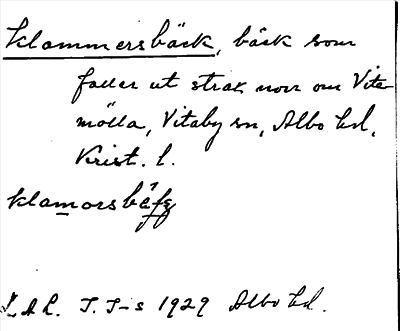 Klammersbäck, bäck som
faller ut strax norr om Vite
mölla, Vitaby sn, Albo hd,
Krist. l.
klamorsbäfʒ
L A L. I. I-s 1929 Albo hd.